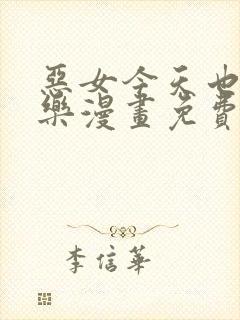 惡女今天也
樂漫畫免費
李信華